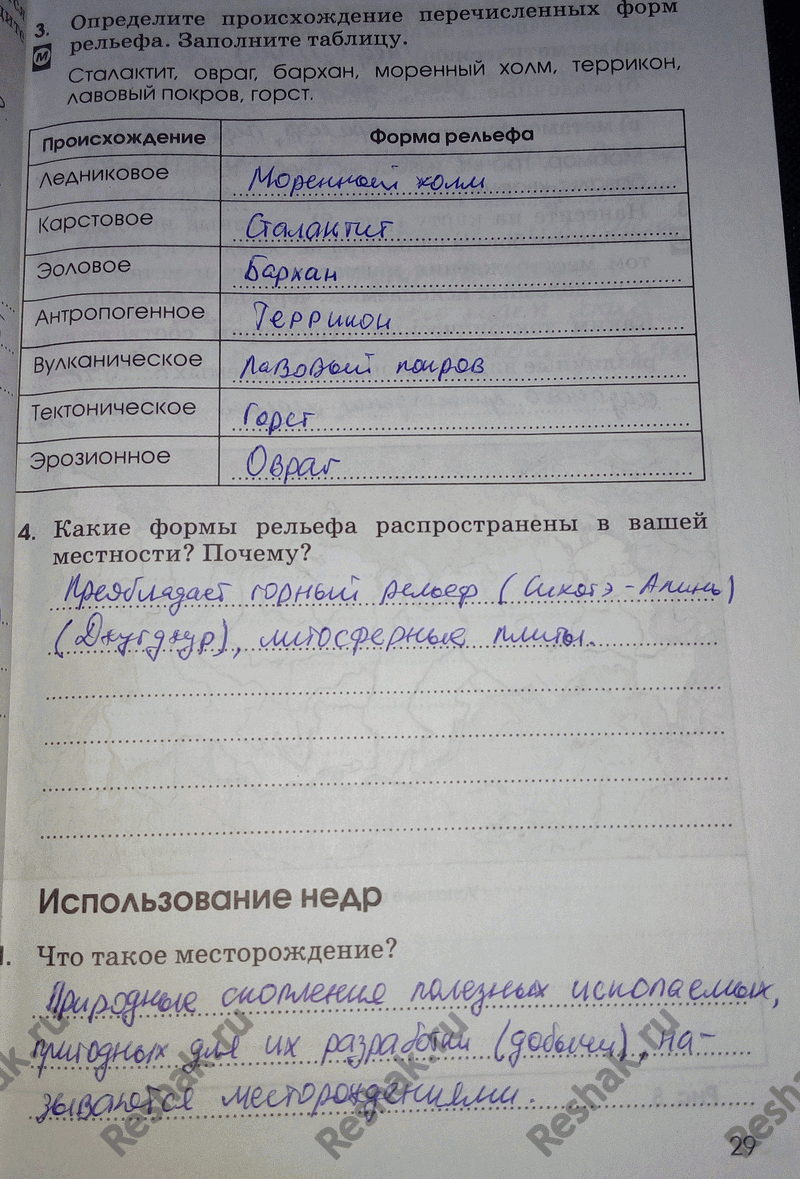 3. Определите происхождение перечисленных форм
рельефа. Заполните таблицу.
М
Сталактит, овраг, бархан, моренный холм, террикон,
лавовый покров, горст.
Происхождение Форма рельефа
Ледниковое Моренный холм
Карстовое Сталактит
Эоловое Бархан
Антропогенное Террикон
Вулканическое Лавовый покров
Тектоническое Горст
Эрозионное Овраг
4. Какие формы рельефа распространены в вашей
местности? Почему?
Преобладает горный рельеф (Сихотэ-Алинь)
(Джугджур), литосферные плиты.
Использование недр
1. Что такое месторождение?
Природные скопления полезных ископаемых,
пригодных для их разработки (добычи), на-
зываются месторождениями.
29
Reshak.ru
Reshak.ru
Reshak.ru